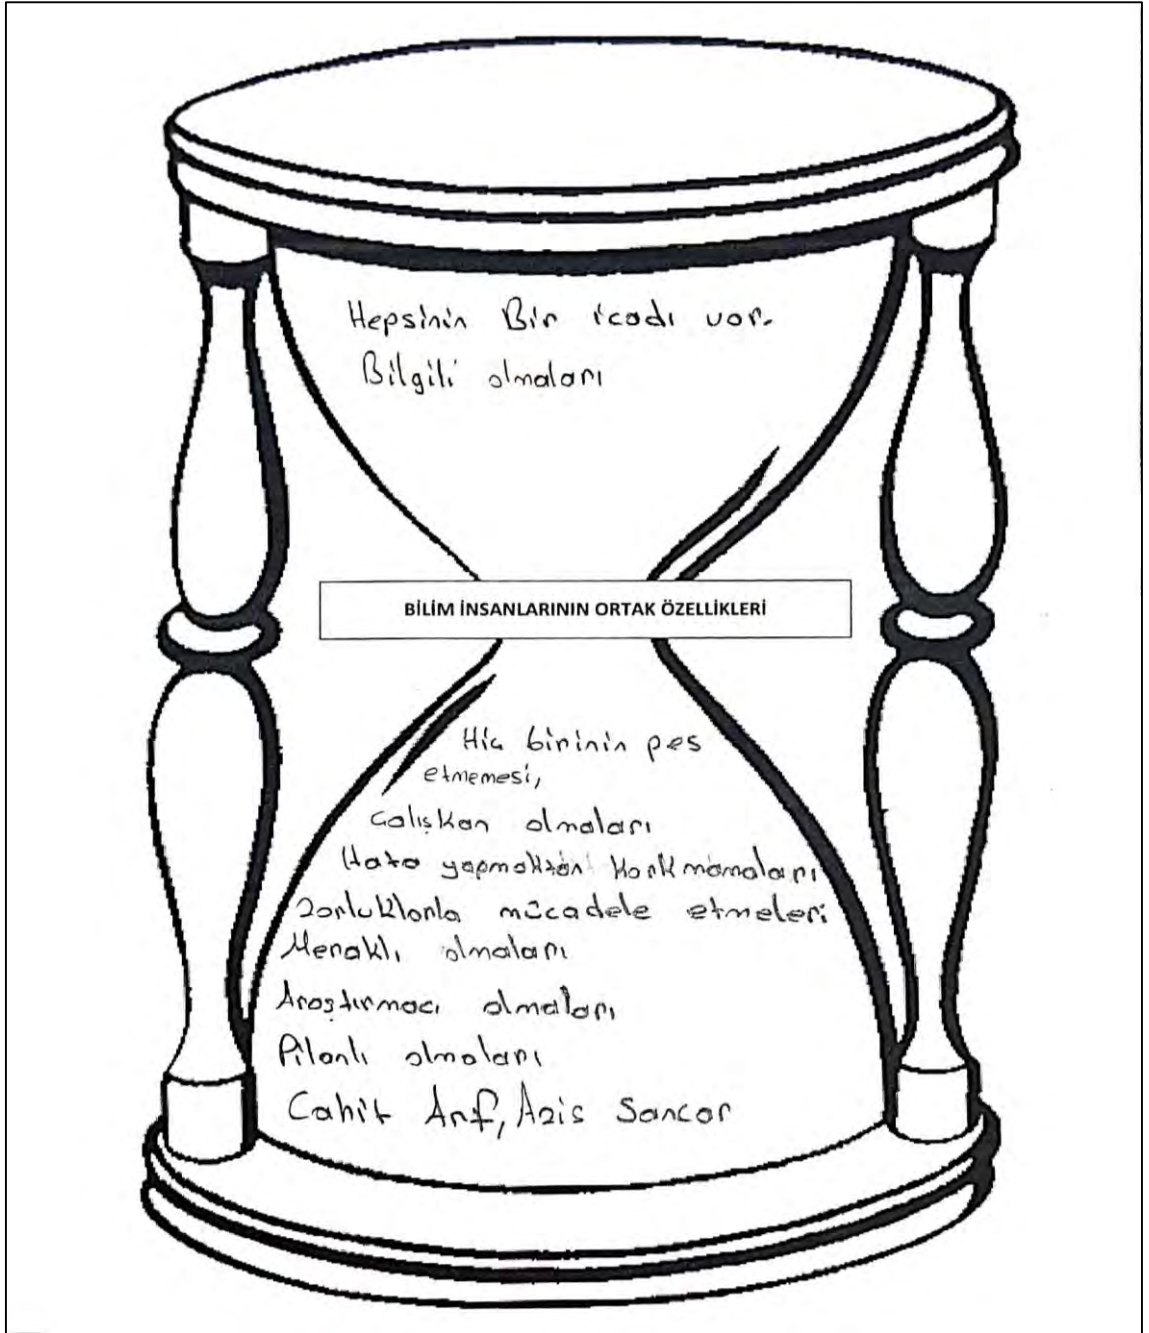 Hepsinin Bir icadı var.
Bilgili olmaları
BİLİM İNSANLARININ ORTAK ÖZELLİKLERİ
Hiç birinin pes
etmemesi,
çalışkan olmaları
Hata yapmaktan korkmamaları
Zorluklarla mücadele etmeleri
Meraklı olmaları
Araştırmacı olmaları
Pilanlı olmaları
Cahit Arf, Azis Sancar